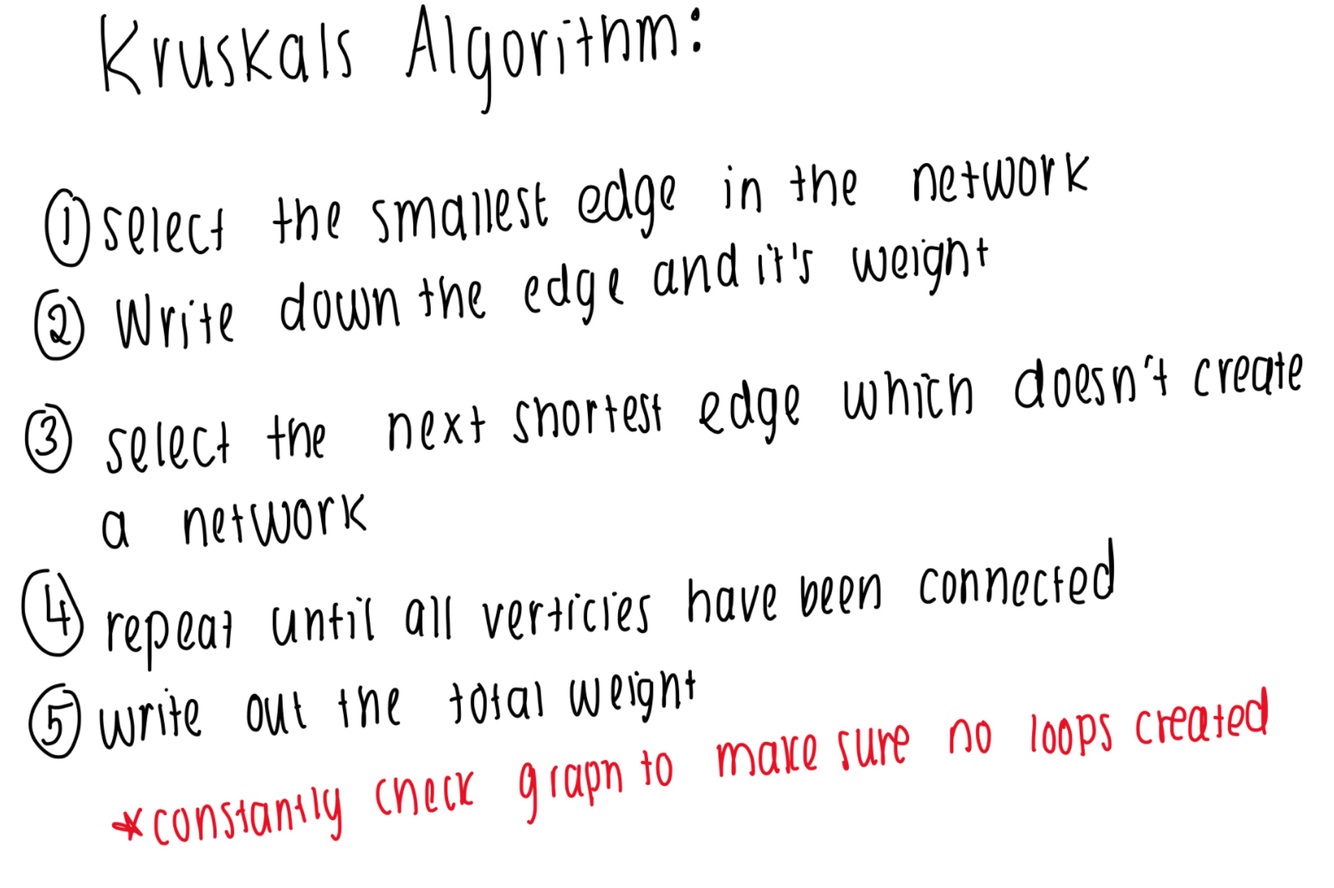 Kruskals Algorithm:
① select the smallest edge in the network
② Write down the edge and it's weight
③ select the next shortest edge which doesn't create
a network
④ repeat until all verticies have been connected
⑤ write out the total weight
*constantly check graph to make sure no loops created